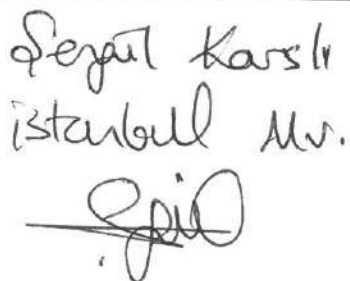 Serpil Karslı
istanbul Mv.